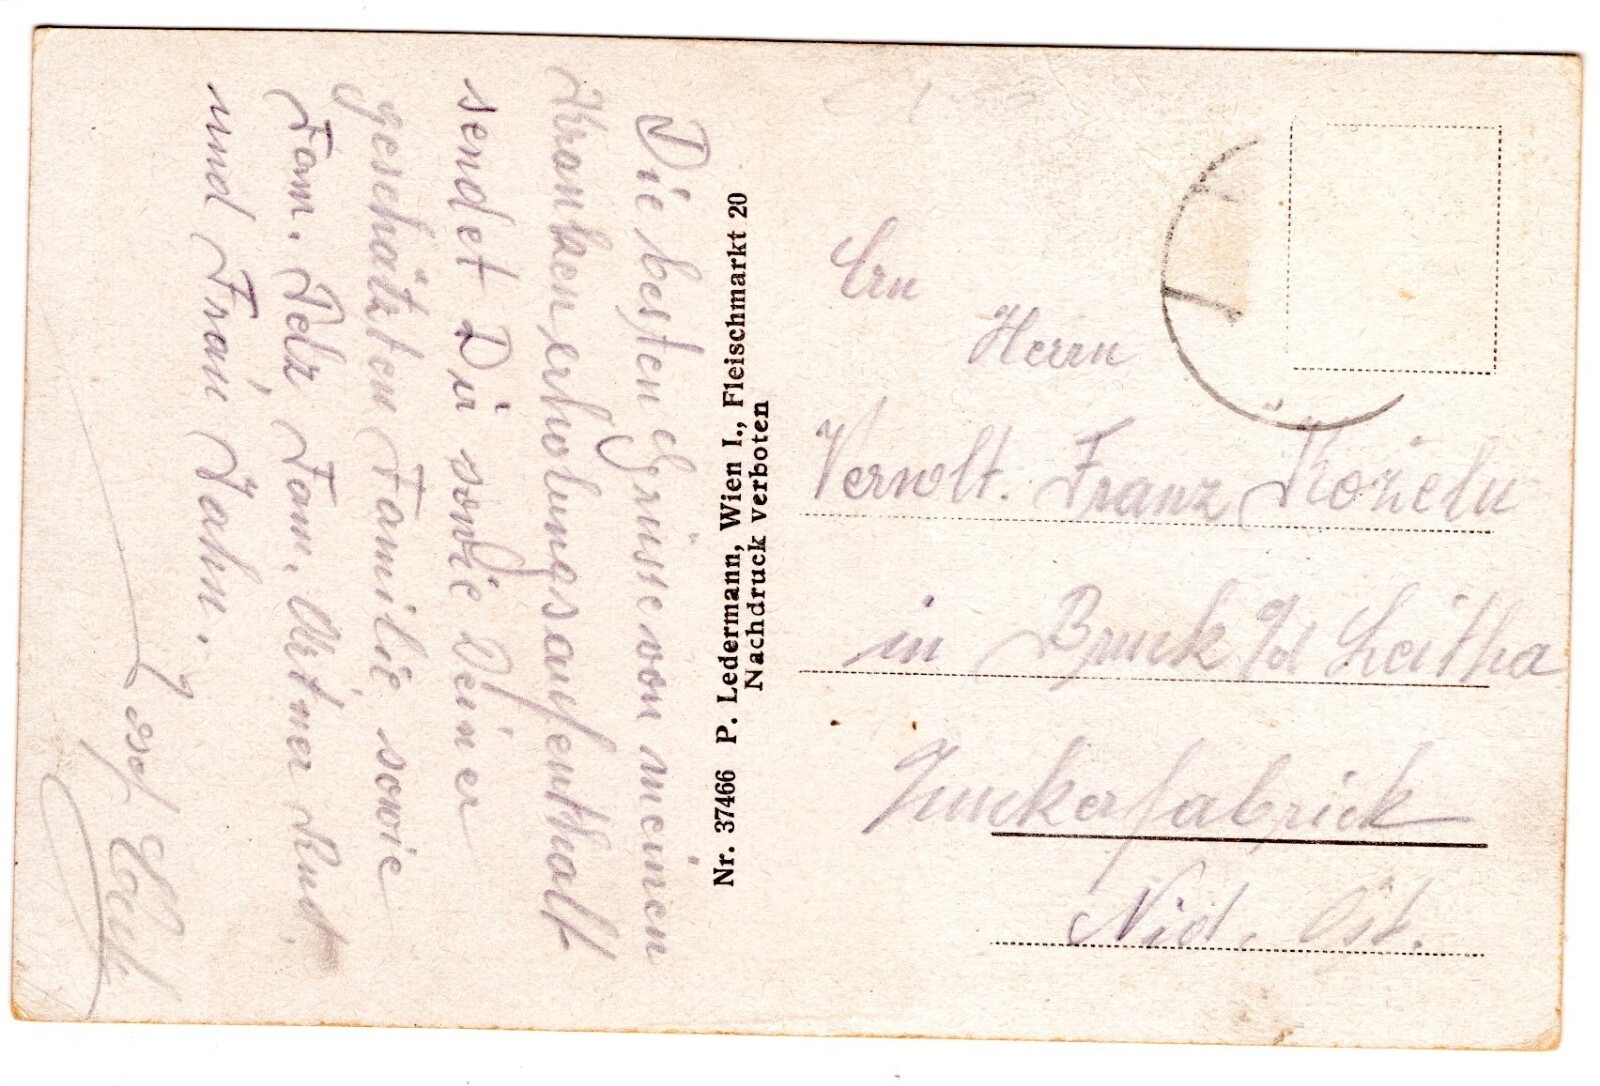 Die besten Grüsse von meinen
Krankenerholungsaufenthalt
sendet Dir sowie Deiner
geschätzten Familie sowie
Fam. Fam. Ortner
und Frau Jahn.
Josef
Nr. 37466 P. Ledermann, Wien I., Fleischmarkt 20
Nachdruck verboten
Herrn
Franz
in Bruck a/d Leitha
Zuckerfabrick
Nid. Öst.